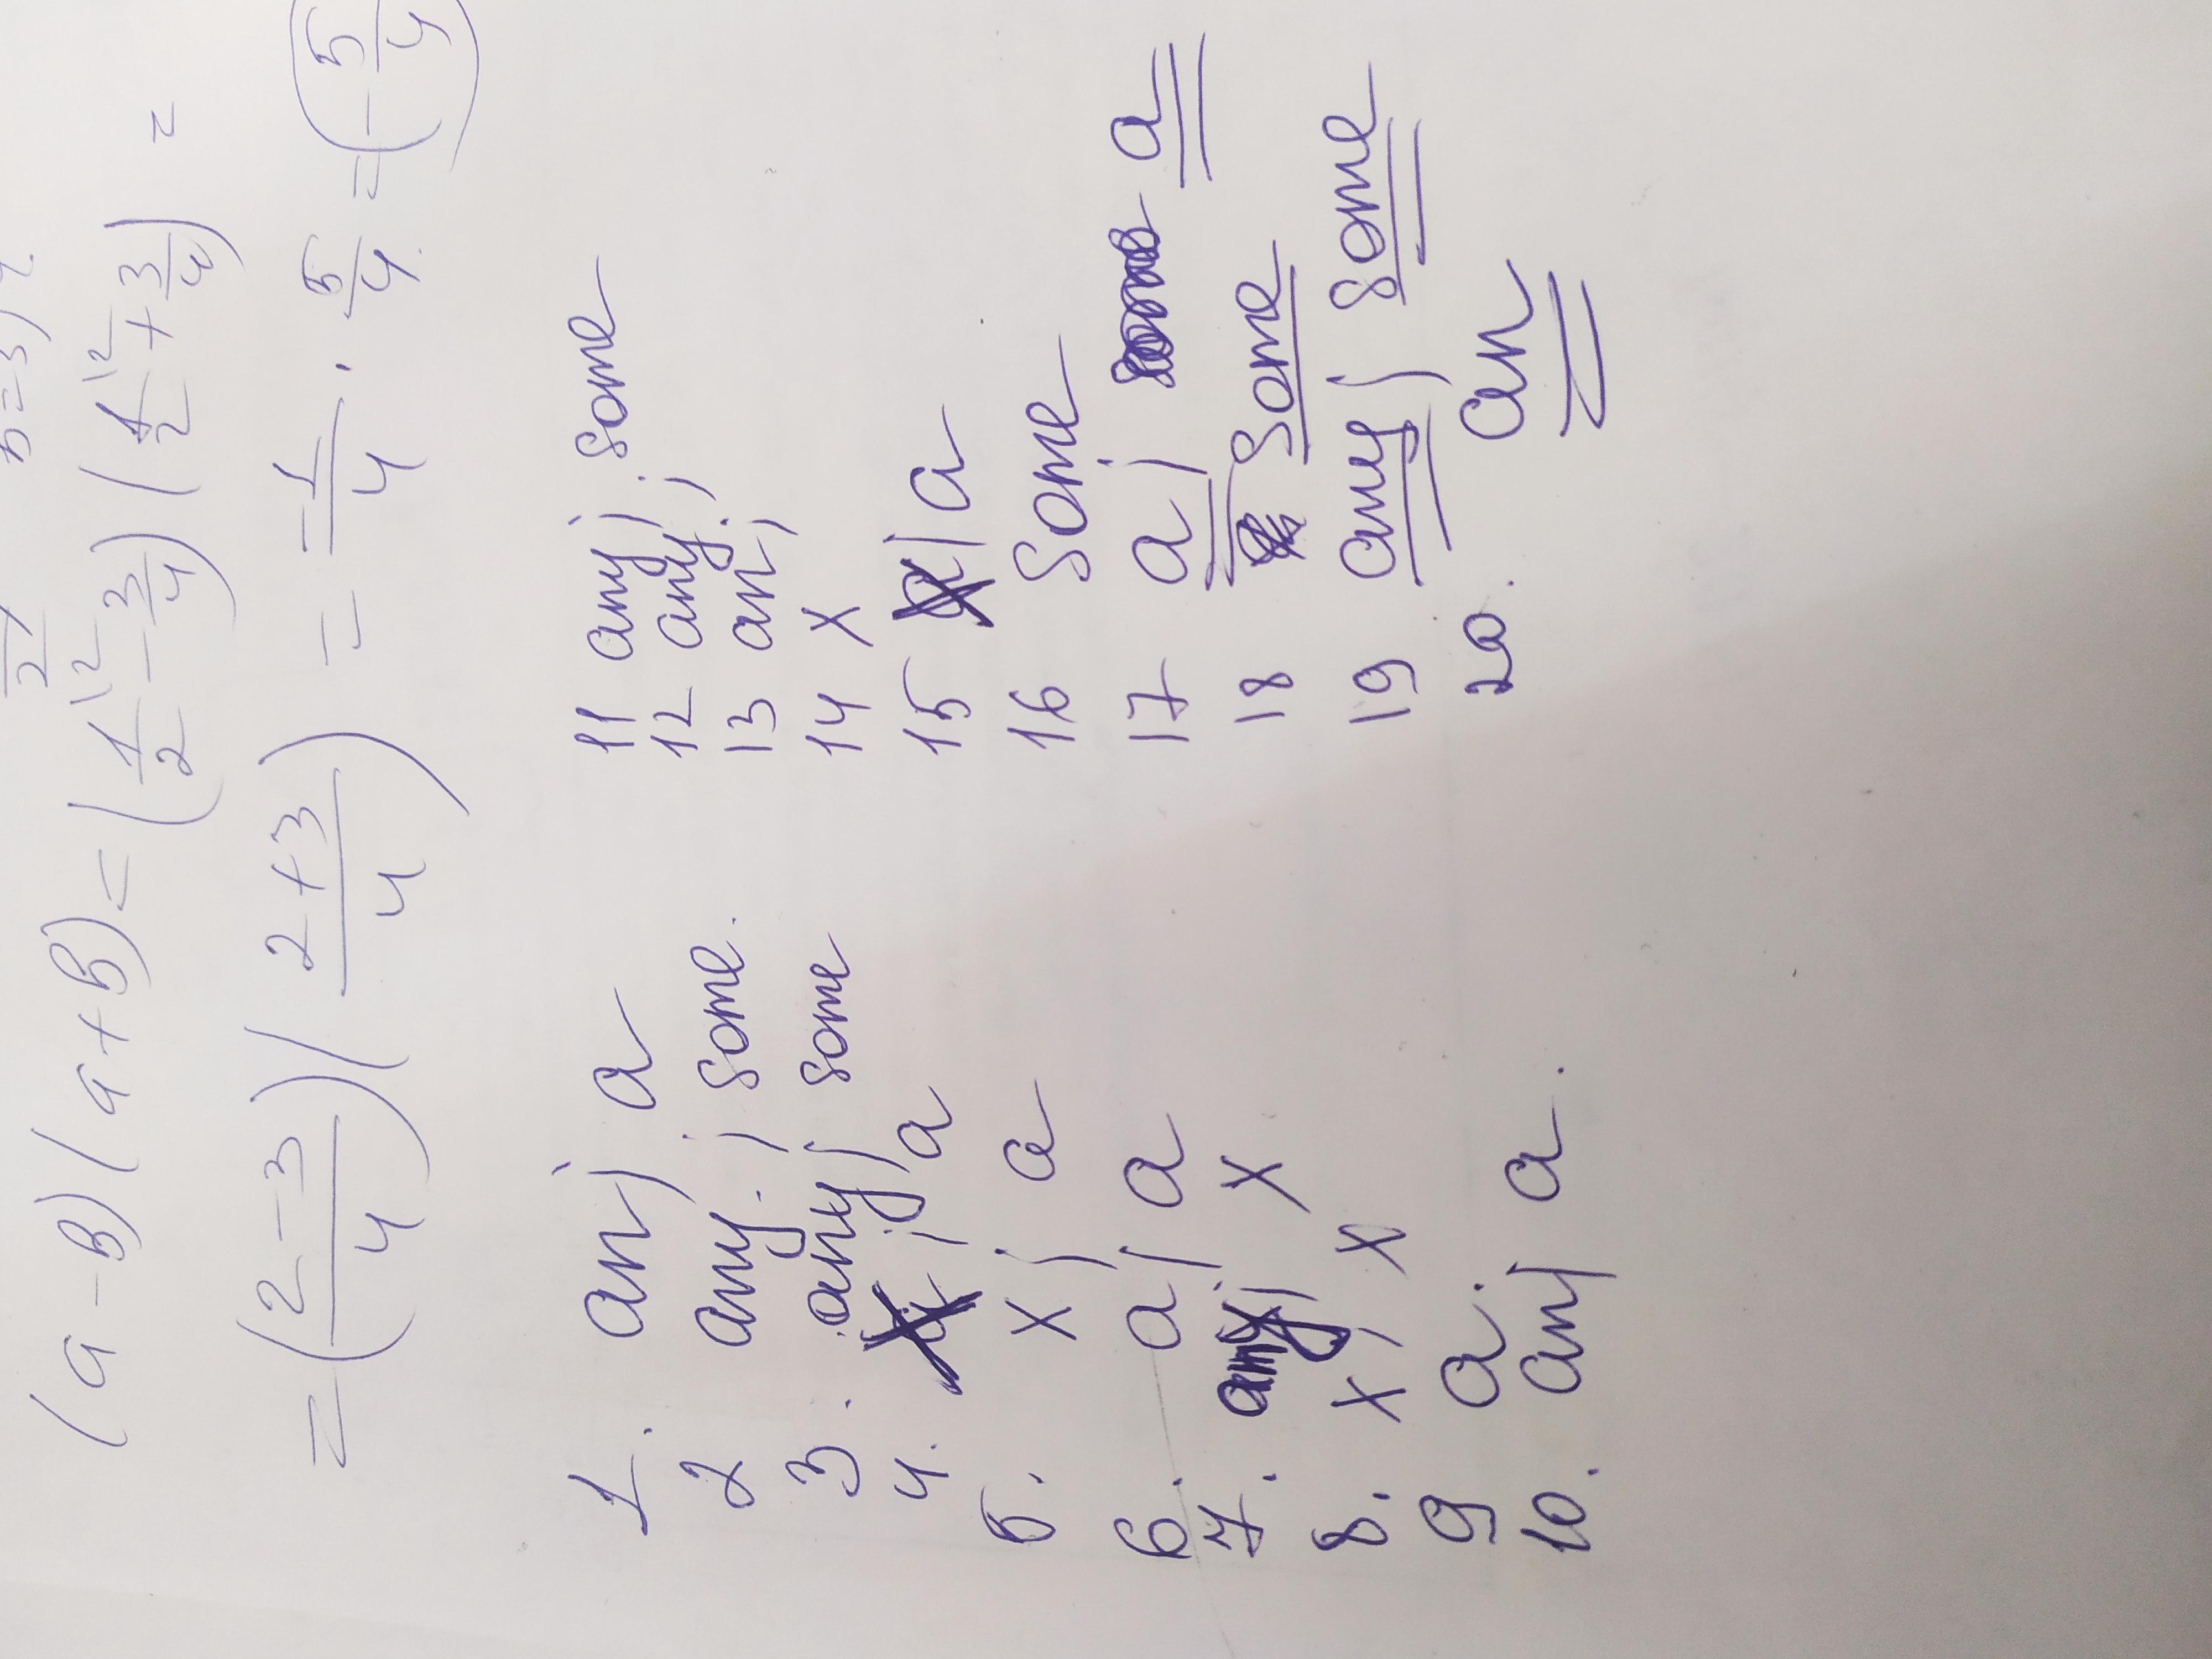 (a - b)(a + b) = (1/2\2 - 3/4)(1/2\2 + 3/4) =
= (2-3/4)(2+3/4) = -1/4 · 5/4 = (-5/4)
1. an; a
2 any; some.
3. any; some
4. ; a
5. x; a
6. a; a
7. ; x
8. x; x
9 a.
10. an; a.
11 any; some
12 any;
13 an;
14 x
15 a
16 some
17 a; a
18 some
19 any; some
20. an